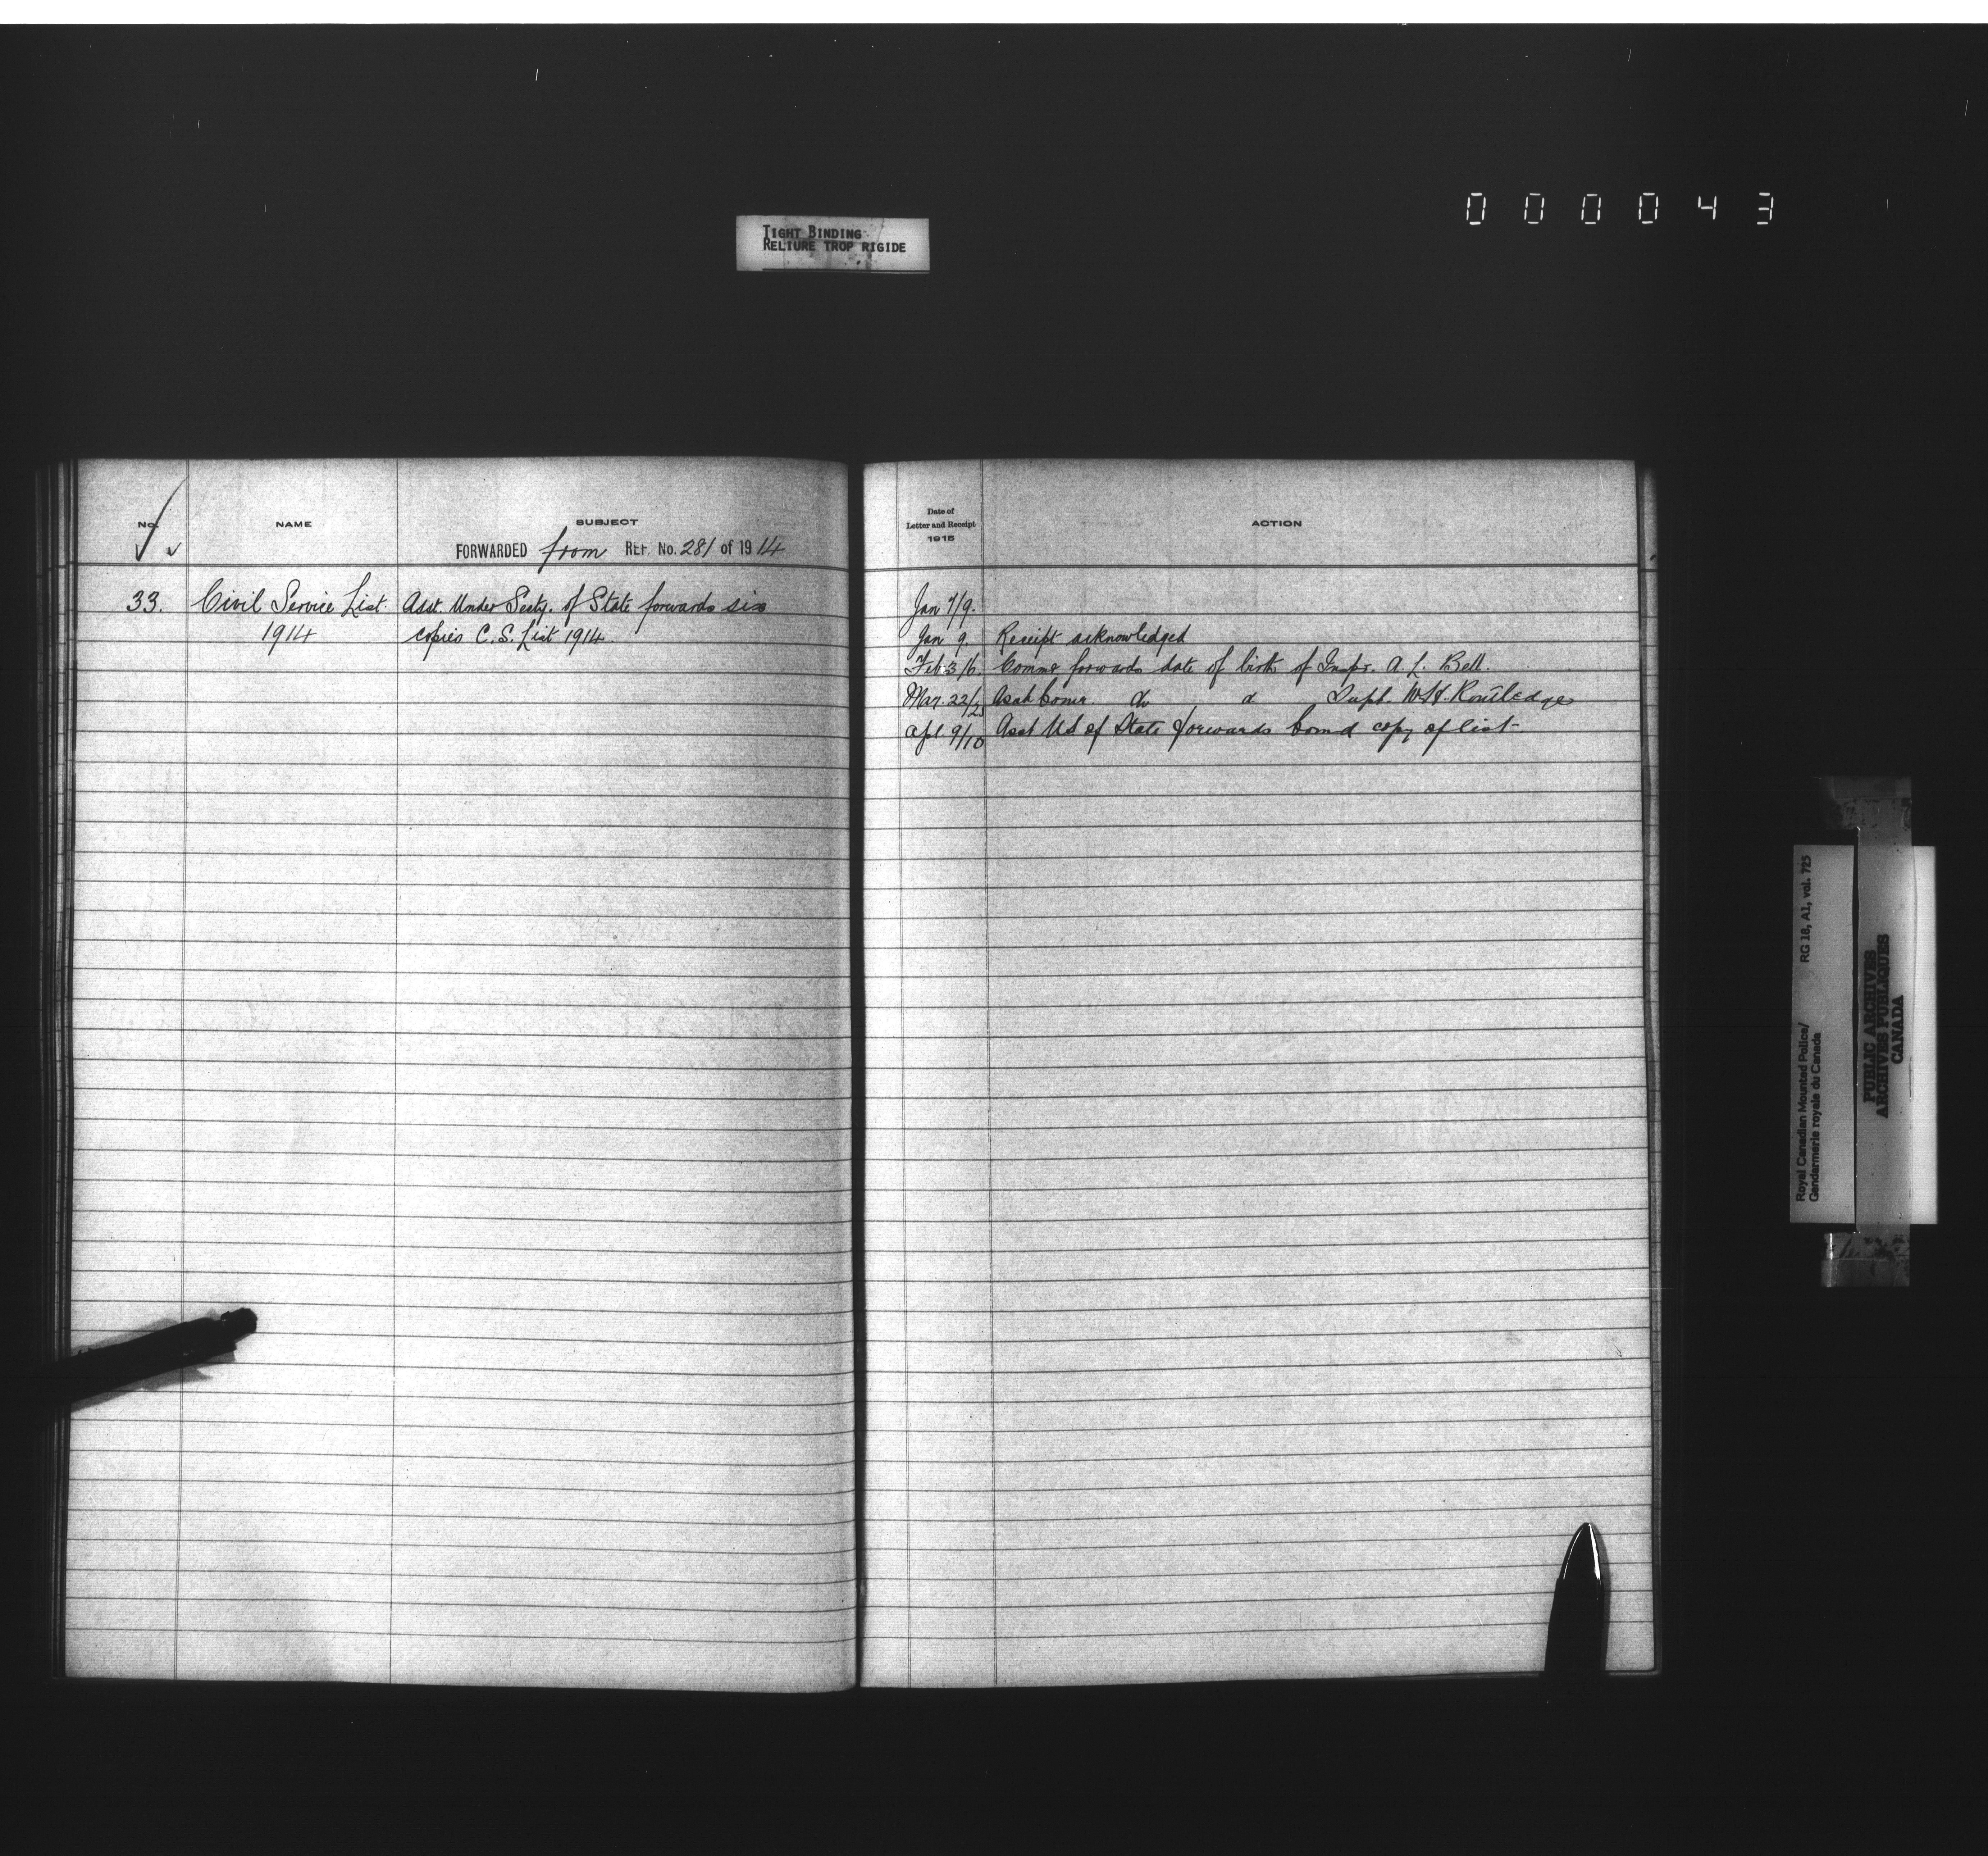 000043
TIGHT BINDING
RELIURE TROP RIGIDE
No. NAME SUBJECT
FORWARDED from REF. No. 281 of 1914
33. Civil Service List Asst. Under Secty. of State forwards six
1914 copies C.S. List 1914.
Date of
Letter and Receipt
1915
ACTION
Jan 7/9.
Jan 9. Receipt acknowledged
Feb 3/6. Commr forwards date of birth of Inspr. A. L. Bell.
Mar. 22/25 Asst Comr. do d Supt. W.H. Routledge
Apl 9/10 Asst U.S. of State forwards bound copy of list
Royal Canadian Mounted Police/ RG 18, A1, vol. 725
Gendarmerie royale du Canada
PUBLIC ARCHIVES
ARCHIVES PUBLIQUES
CANADA